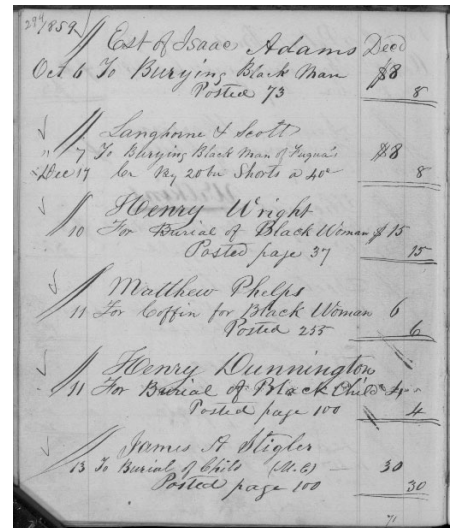 284/1859
Est of Isaac Adams Decd
Oct 6 To Burying Black Man $8
Posted 73 8
Langhorne & Scott
" 7 To Burying Black Man of Fuqua's $8
Dec 17 Cr By 20 bu Shorts a 40c 8
Henry Wright
10 For Burial of Black Woman $15
Posted page 37 15
Matthew Phelps
11 For Coffin for Black Woman 6
Posted 255 6
Henry Dunnington
11 For Burial of Black Child 4
Posted page 100 4
James A Stigler
13 To Burial of Child (M.E) — 30
Posted page 100 30
71